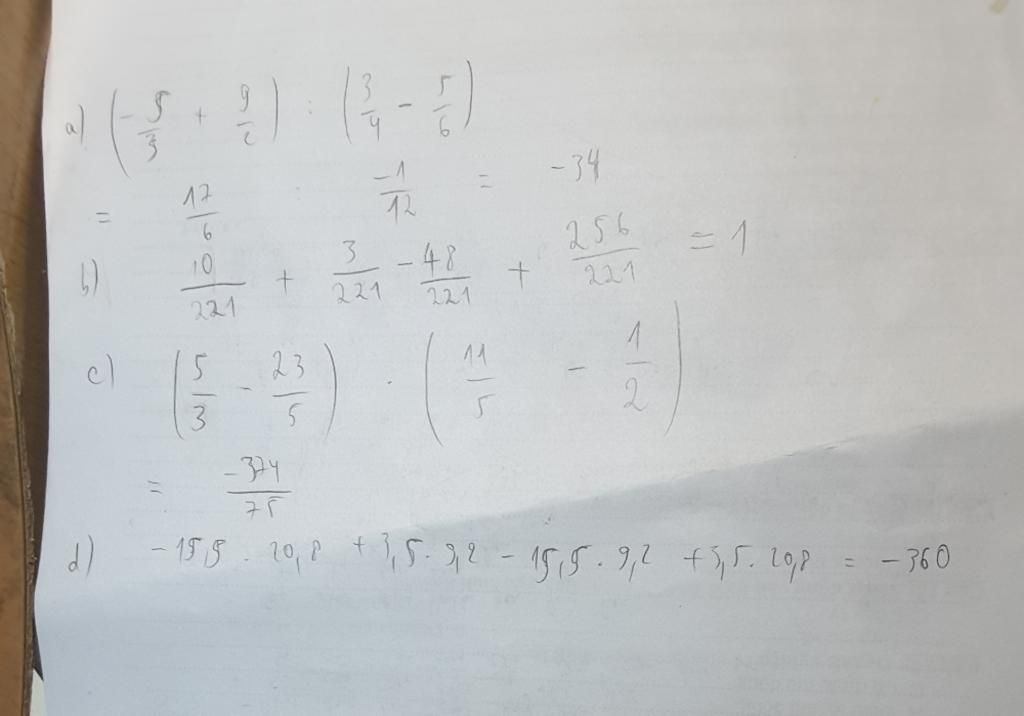 a) (-5/3 + 9/2) : (3/4 - 5/6)
= 17/6 : -1/12 = -34
b) 10/221 + 3/221 - 48/221 + 256/221 = 1
c) (5/3 - 23/5) · (11/5 - 1/2)
= -374/75
d) -15,5 · 20,8 + 3,5 · 9,2 - 15,5 · 9,2 + 3,5 · 20,8 = -360